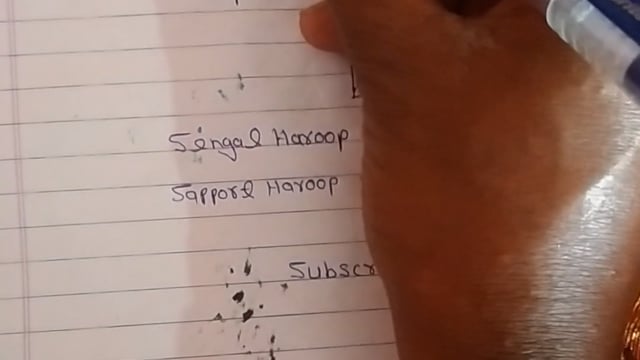 Sengal Haroop
Sapport Haroop
Subscr